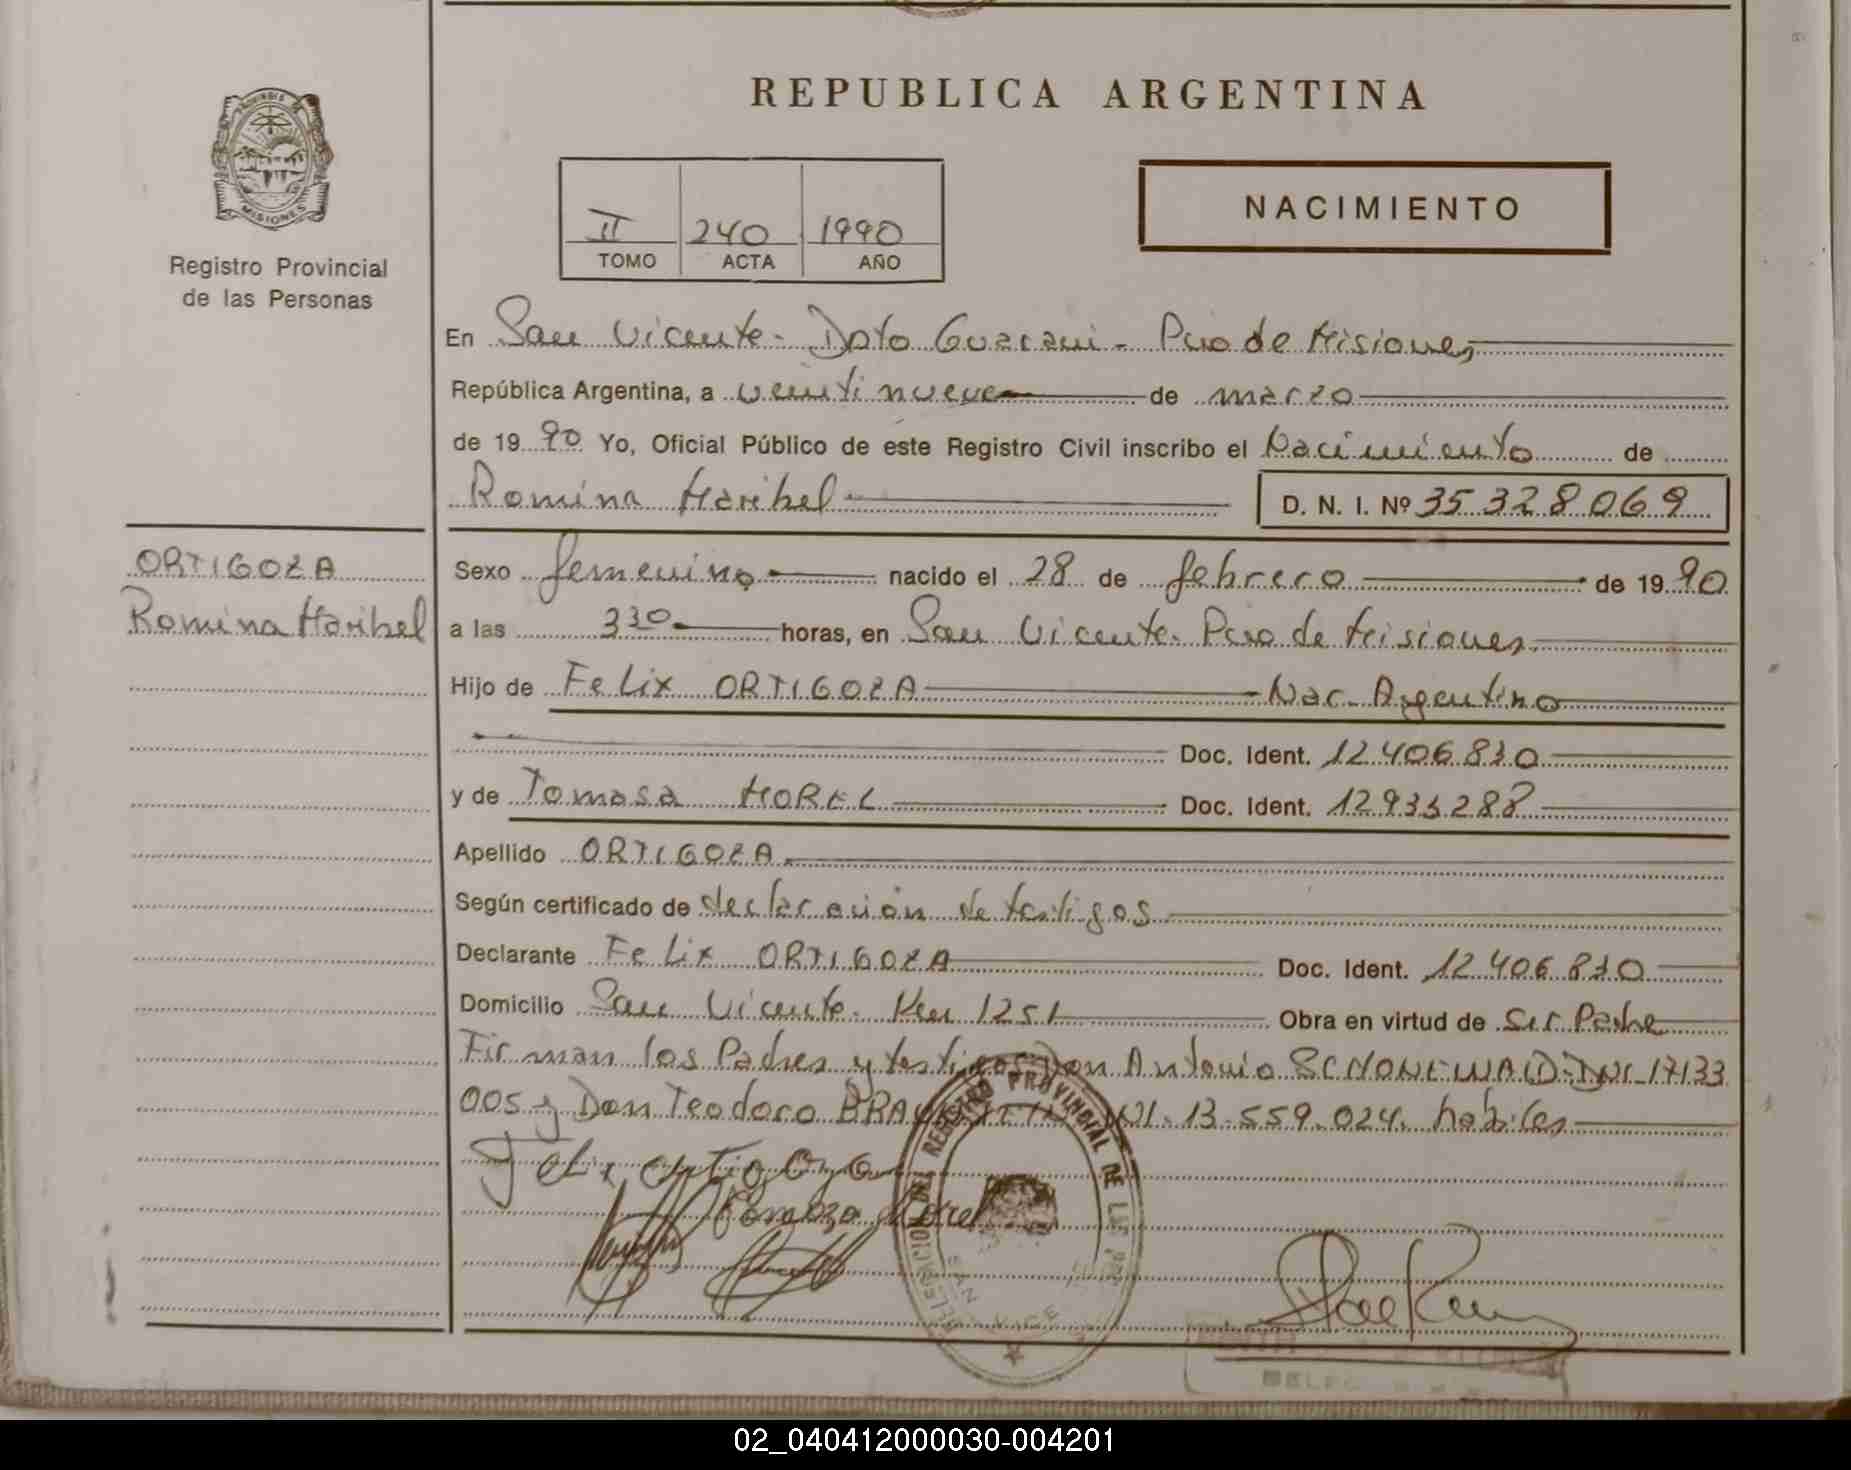 REPUBLICA ARGENTINA
PROVINCIA DE
MISIONES
Registro Provincial
de las Personas
II 240 1990
TOMO ACTA AÑO
NACIMIENTO
En San Vicente - Dpto Guarani - Pcia de Misiones
República Argentina, a veintinueve de marzo
de 19 90 Yo, Oficial Público de este Registro Civil inscribo el Nacimiento de
Romina Maribel D. N. I. Nº 35 328 069
ORTIGOZA
Romina Maribel
Sexo femenino nacido el 28 de febrero de 19 90
a las 330 horas, en San Vicente. Pcia de Misiones
Hijo de Felix ORTIGOZA Nac. Argentino
Doc. Ident. 12 406 830
y de Tomasa MOREL Doc. Ident. 12 935 288
Apellido ORTIGOZA
Según certificado de declaración de testigos
Declarante Felix ORTIGOZA Doc. Ident. 12 406 830
Domicilio San Vicente. Km 1251 Obra en virtud de Ser Padre
Firman los Padres y testigos Don Antonio DNI 17133
005 y Don Teodoro DNI. 13.559.024. habiles
Felix Ortigoza
Morel
REGISTRO PROVINCIAL DE LAS
SAN VICE
02_040412000030-004201